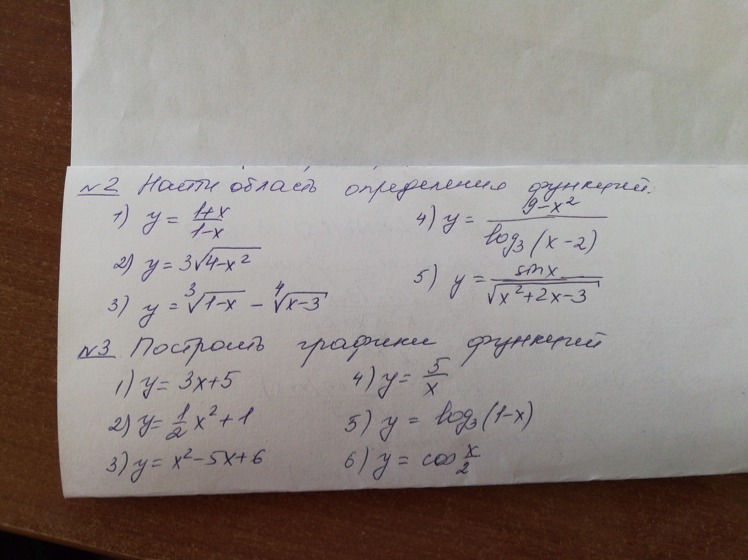 №2 Найти область определения функций.
1) y = 1+x/1-x
2) y = 3√4-x²
3) y = ³√1-x - ⁴√x-3
4) y = 9-x²/log₃(x-2)
5) y = sinx/√x²+2x-3
№3 Построить графики функций
1) y = 3x+5
2) y = 1/2 x² + 1
3) y = x² - 5x + 6
4) y = 5/x
5) y = log₃(1-x)
6) y = cos x/2